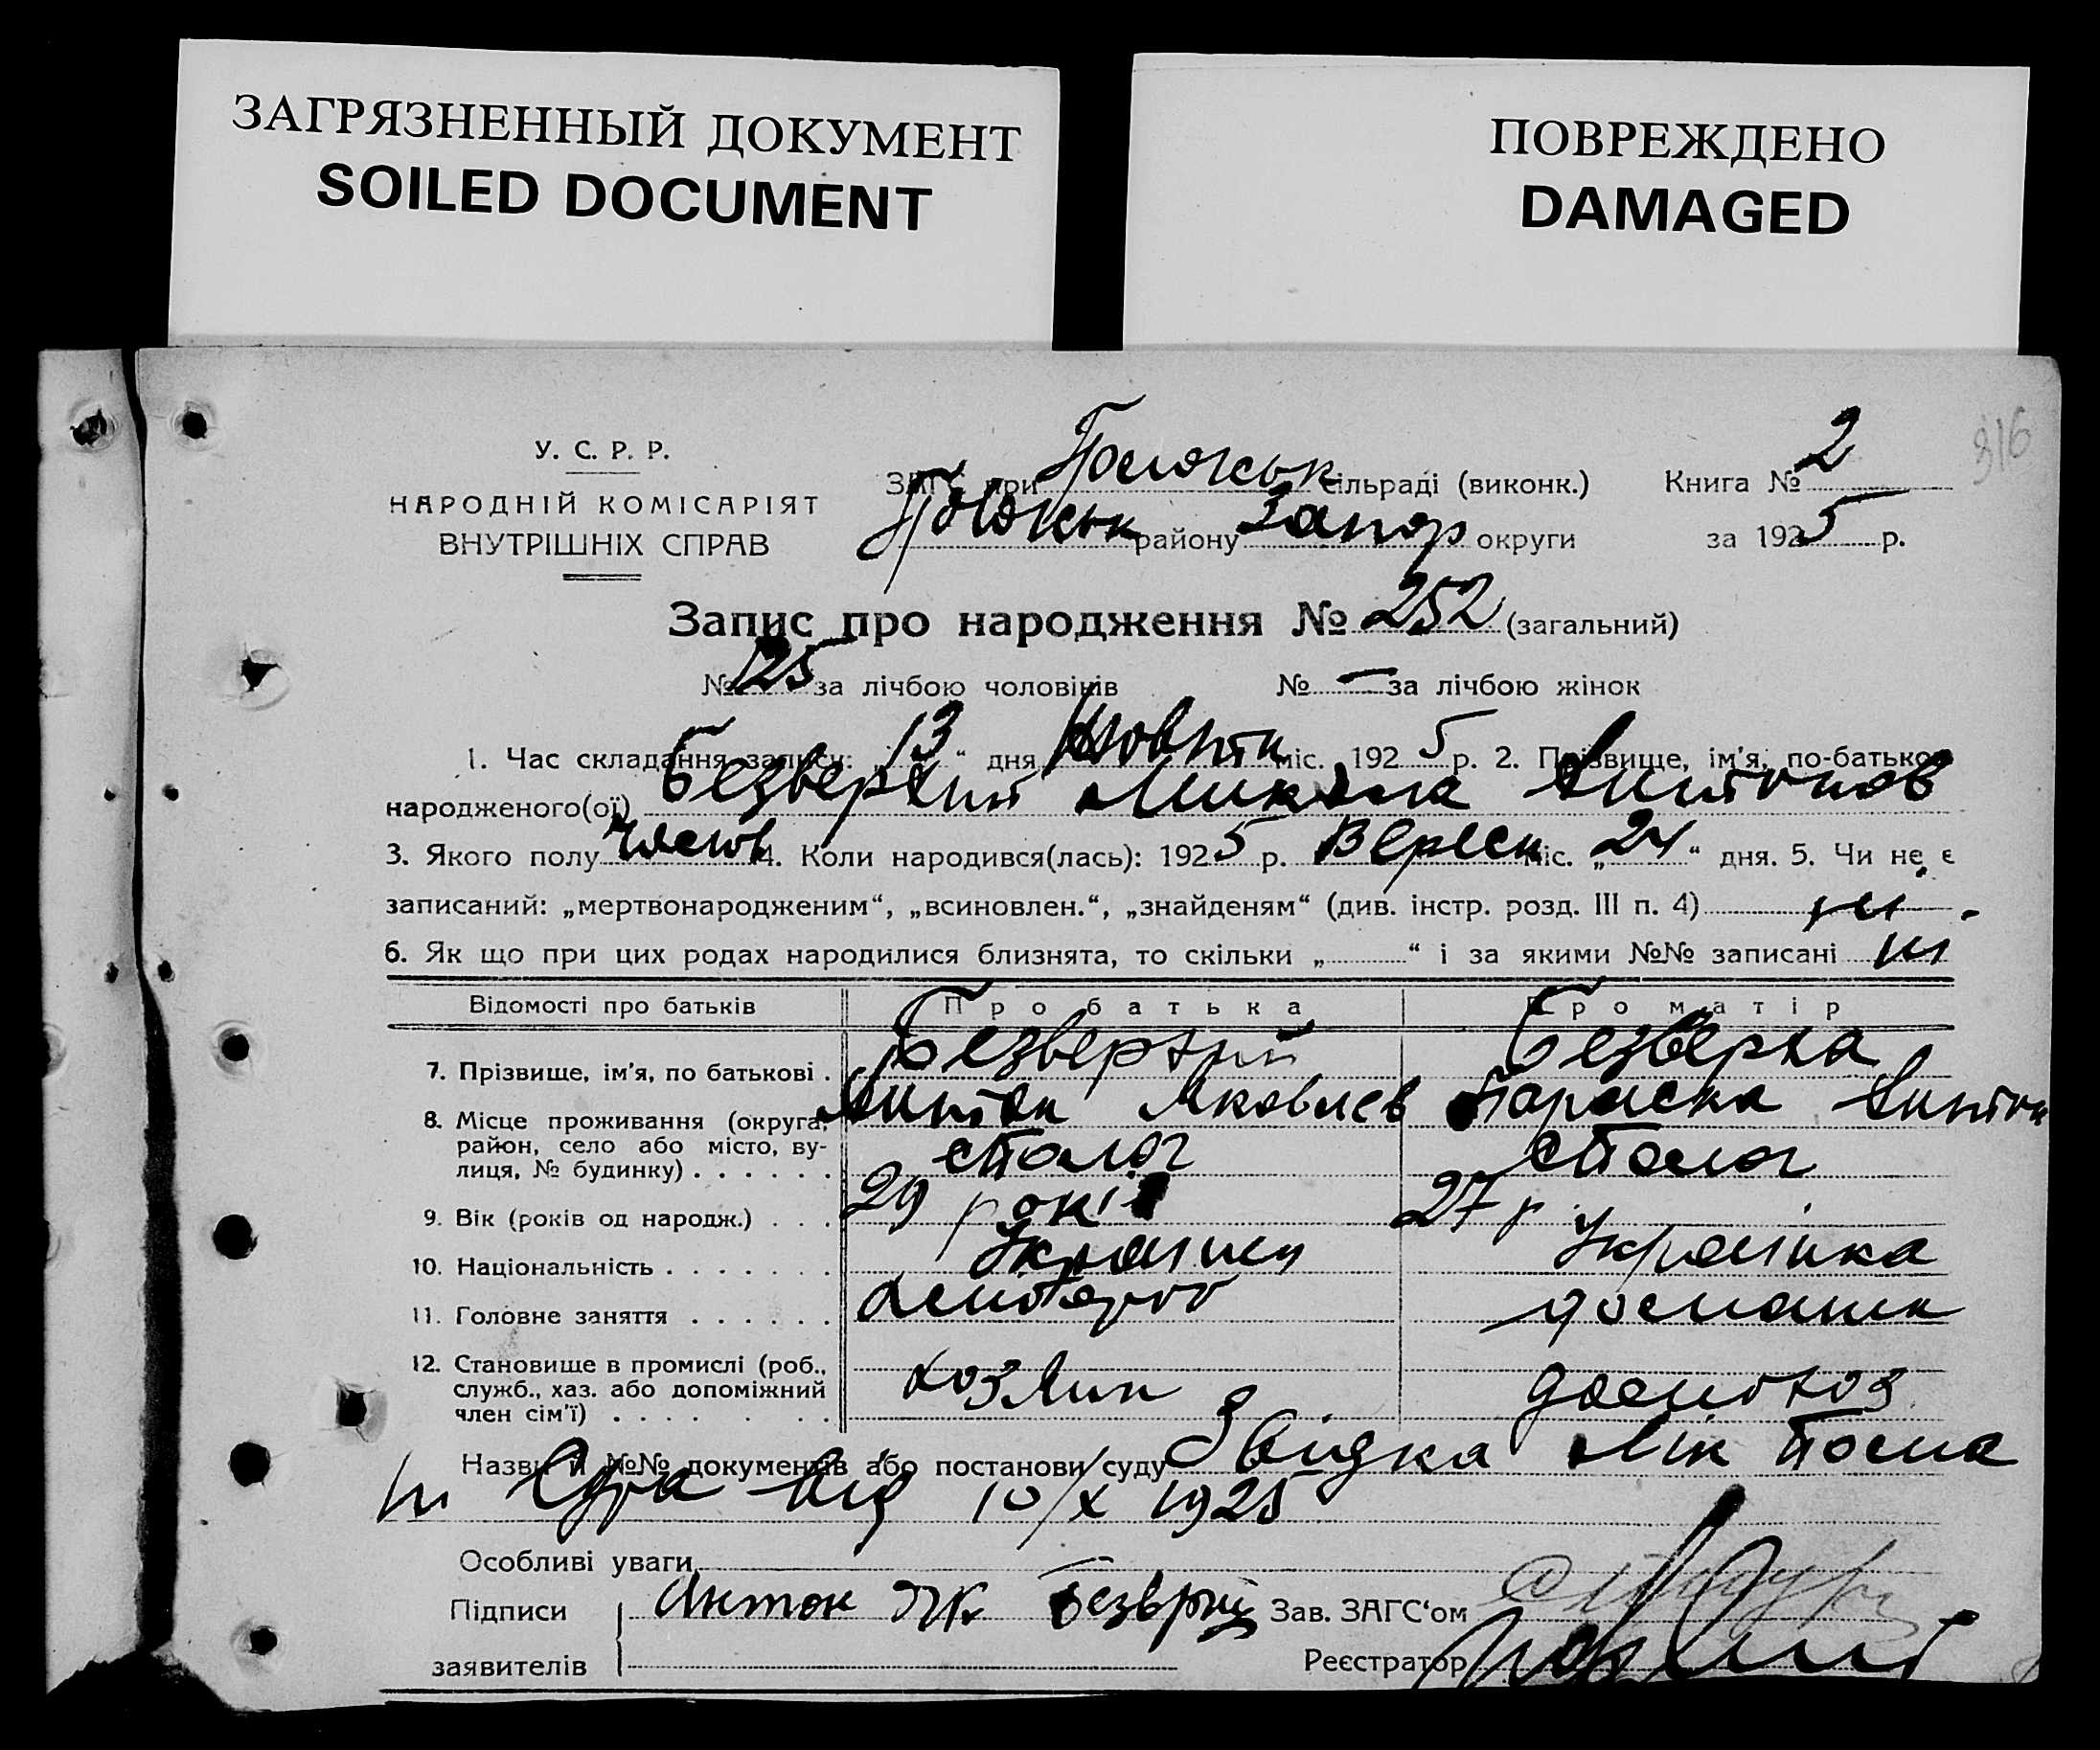 ЗАГРЯЗНЕННЫЙ ДОКУМЕНТ
SOILED DOCUMENT
ПОВРЕЖДЕНО
DAMAGED
316
У. С. Р. Р.
НАРОДНІЙ КОМІСАРІЯТ
ВНУТРІШНІХ СПРАВ
ЗАГС при сільраді (виконк.) Книга № 2
району Запор округи за 1925 р.
Запис про народження № 252 (загальний)
№ 125 за лічбою чоловіків № — за лічбою жінок
1. Час складання запису: „13“ дня Жовтн міс. 1925 р. 2. Прізвище, ім'я, по-батьков
народженого(ої) Безверхий Микола Антонов
3. Якого полу 4. Коли народився(лась): 1925 р. Вересн міс. „24“ дня. 5. Чи не є
записаний: „мертвонародженим“, „всиновлен.“, „знайденям“ (див. інстр. розд. III п. 4) ні.
6. Як що при цих родах народилися близнята, то скільки „ “ і за якими №№ записані ні
Відомості про батьків Про батька Про матір
7. Прізвище, ім'я, по батькові . Безверхий Безверха
Антон Яковлев Параска Антон
8. Місце проживання (округа,
район, село або місто, ву-
лиця, № будинку) . . . . . .
9. Вік (років од народж.) . . . 29 років 27 р
10. Національність . . . . . . . Українец Українка
11. Головне заняття . . . . . .
12. Становище в промислі (роб.,
служб., хаз. або допоміжний
член сім'ї) . . . . . . .
Назви й №№ документів або постанови суду Звідка
від 10/X 1925
Особливі уваги
Підписи Антон Як Безврий Зав. ЗАГС'ом
заявителів Реєстратор